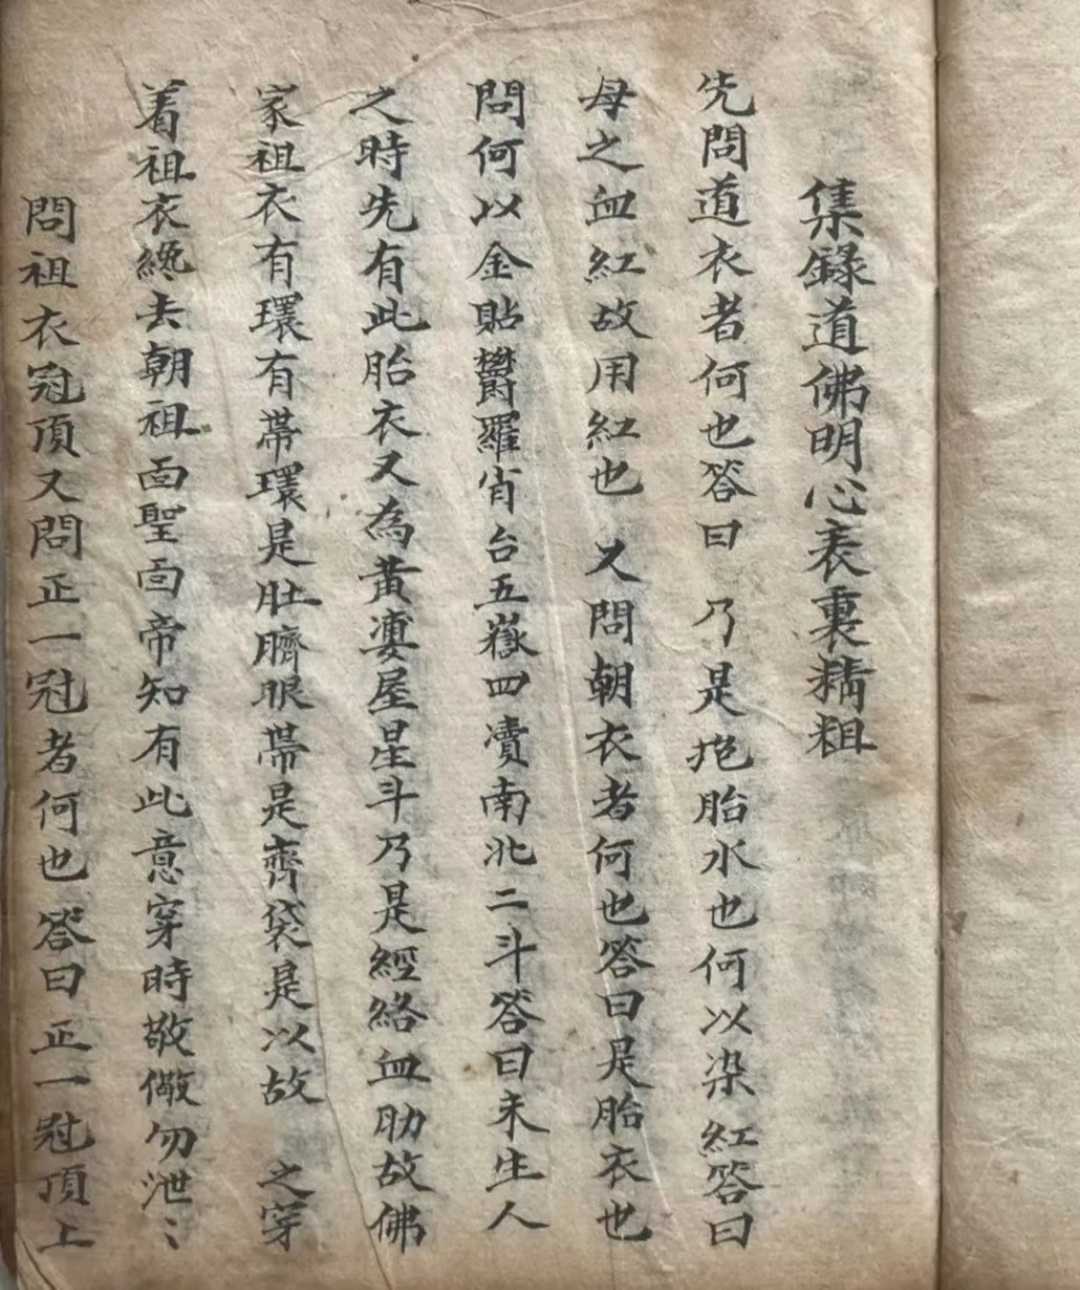 集錄道佛明心表裏精粗
先問道衣者何也答曰 乃是抱胎水也何以染紅答曰
母之血紅故用紅也 又問朝衣者何也答曰是胎衣也
問何以金貼欝羅肖台五嶽四凟南北二斗答曰未生人
之時先有此胎衣又為黃屋星斗乃是經絡血肋故佛
家祖衣有環有帶環是肚臍眼帶是齊袋是以故 之穿
着祖衣纔去朝祖面聖面帝知有此意穿時敬儆勿泄〻
問祖衣冠頂又問正一冠者何也答曰正一冠頂上